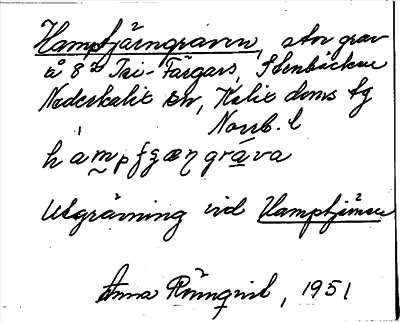 Hamptjärngraven, stor grav
å 8² Tri-Färgars, Stenbäcken
Nederkalix sn, Kalix doms tg
Norrb. l
hampfgæŋgráva
Utgrävning vid Hamptjärnen
Anna Rönnqvist, 1951